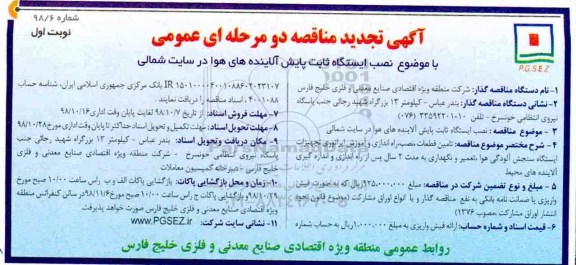 شماره ۹۸/۶
نوبت اول
آگهی تجدید مناقصه دو مرحله ای عمومی
با موضوع نصب ایستگاه ثابت پایش آلاینده های هوا در سایت شمالی
P.G.SEZ
۱- نام دستگاه مناقصه گذار: شرکت منطقه ویژه اقتصادی صنایع معدنی و فلزی خلیج فارس
۲- نشانی دستگاه مناقصه گذار: بندر عباس - کیلومتر ۱۳ بزرگراه شهید رجائی جنب پاسگاه
نیروی انتظامی خونسرخ - تلفن
۳ - موضوع مناقصه: نصب ایستگاه ثابت پایش آلاینده های هوا در سایت شمالی
۴- شرح مختصر موضوع مناقصه: تامین قطعات، نصب، راه اندازی و آموزش اپراتوری تجهیزات
ایستگاه سنجش آلودگی هوا، تعمیر و نگهداری به مدت ۲ سال پس از راه اندازی و اندازه گیری
آلاینده های محیط
۵- مبلغ و نوع تضمین شرکت در مناقصه: مبلغ ریال که به صورت فیش
واریزی یا ضمانت نامه بانکی به نفع مناقصه گذار و یا انواع اوراق مشارکت (موضوع قانون نحوه
انتشار اوراق مشارکت مصوب ۱۳۷۶)
۶- قیمت اسناد و شماره حساب: ارائه فیش واریزی به مبلغ ۱.۰۰۰.۰۰۰ ریال به حساب شماره
IR بانک مرکزی جمهوری اسلامی ایران، شناسه حساب
اسناد مناقصه را دریافت نمایند.
۷- مهلت فروش اسناد: از تاریخ ۹۸/۱۰/۷ لغایت پایان وقت اداری ۹۸/۱۰/۱۶
۸- مهلت تحویل اسناد: مهلت تکمیل و تحویل اسناد حداکثر تا پایان وقت اداری مورخ ۹۸/۱۰/۲۸
۹- مکان دریافت و تحویل اسناد: بندر عباس - کیلومتر ۱۳ بزرگراه شهید رجائی جنب
پاسگاه نیروی انتظامی خونسرخ - شرکت منطقه ویژه اقتصادی صنایع معدنی و فلزی
خلیج فارس - دبیرخانه کمیسیون معاملات
۱۰- زمان و محل بازگشایی پاکات: بازگشایی پاکات الف و ب راس ساعت ۱۰:۰۰ صبح مورخ
۹۸/۱۰/۲۹ و بازگشایی پاکات ج راس ساعت ۱۰:۰۰ صبح مورخ ۹۸/۱۱/۶ در سالن کنفرانس منطقه
ویژه اقتصادی صنایع معدنی و فلزی خلیج فارس صورت خواهد پذیرفت.
۱۱- نشانی سایت شرکت: www.PGSEZ.ir
روابط عمومی منطقه ویژه اقتصادی صنایع معدنی و فلزی خلیج فارس